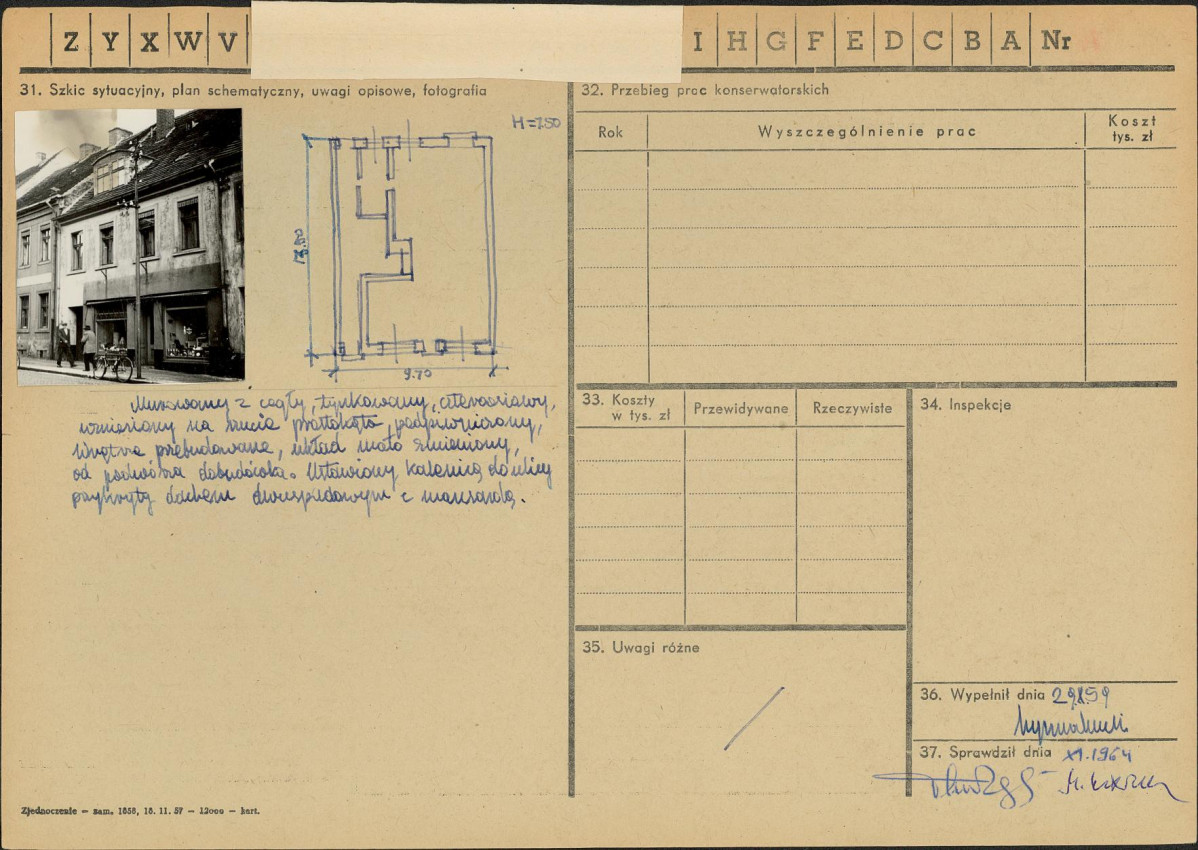 Z Y X W V I H G F E D C B A Nr
31. Szkic sytuacyjny, plan schematyczny, uwagi opisowe, fotografia
H=7.50
9.70
Murowany z cegły, tynkowany, czteroosiowy,
wzniesiony na rzucie prostokąta, podpiwniczony,
Wnętrza przebudowane, układ mało zmieniony,
od podwórza dobudówka. Ustawiony kalenicą do ulicy
przykryty dachem dwuspadowym z mansardą.
Zjednoczenie — zam. 1858, 18. 11. 57 — 12000 — kart.
32. Przebieg prac konserwatorskich
Rok
Wyszczególnienie prac
Koszt
tys. zł
33. Koszty
w tys. zł
Przewidywane
Rzeczywiste
34. Inspekcje
35. Uwagi różne
36. Wypełnił dnia
37. Sprawdził dnia XI.1964